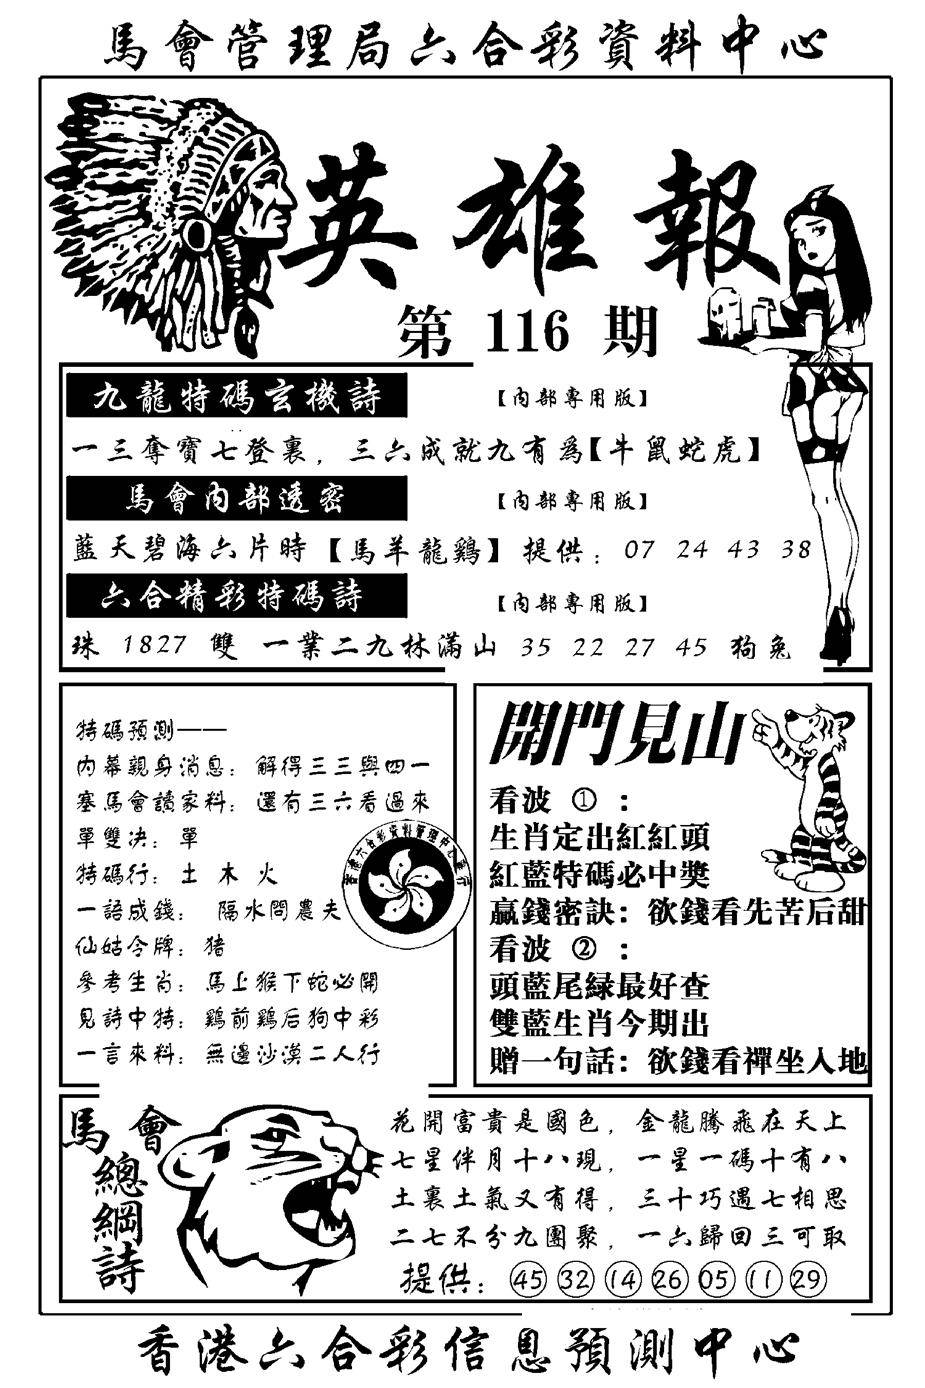 馬會管理局六合彩資料中心
英雄報
第 116 期
九龍特碼玄機詩 【內部專用版】
一三奪寶七登裏，三六成就九有為【牛鼠蛇虎】
馬會內部透密 【內部專用版】
藍天碧海六片時【馬羊龍鷄】提供：07 24 43 38
六合精彩特碼詩 【內部專用版】
珠 1827 雙 一業二九林滿山 35 22 27 45 狗兔
特碼預測——
內幕親身消息：解得三三與四一
塞馬會讀家料：還有三六看過來
單雙決：單
特碼行：土 木 火
一語成錢：隔水問農夫
仙姑令牌：猪
參考生肖：馬上猴下蛇必開
見詩中特：鷄前鷄后狗中彩
一言來料：無邊沙漠二人行
香港六合彩資料管理中心發行
開門見山
看波 ①：
生肖定出紅紅頭
紅藍特碼必中獎
贏錢密訣：欲錢看先苦后甜
看波 ②：
頭藍尾緑最好查
雙藍生肖今期出
贈一句話：欲錢看禪坐入地
馬會
總綱詩
花開富貴是國色，金龍騰飛在天上
七星伴月十八現，一星一碼十有八
土裏土氣又有得，三十巧遇七相思
二七不分九團聚，一六歸回三可取
提供：45 32 14 26 05 11 29
香港六合彩信息預測中心